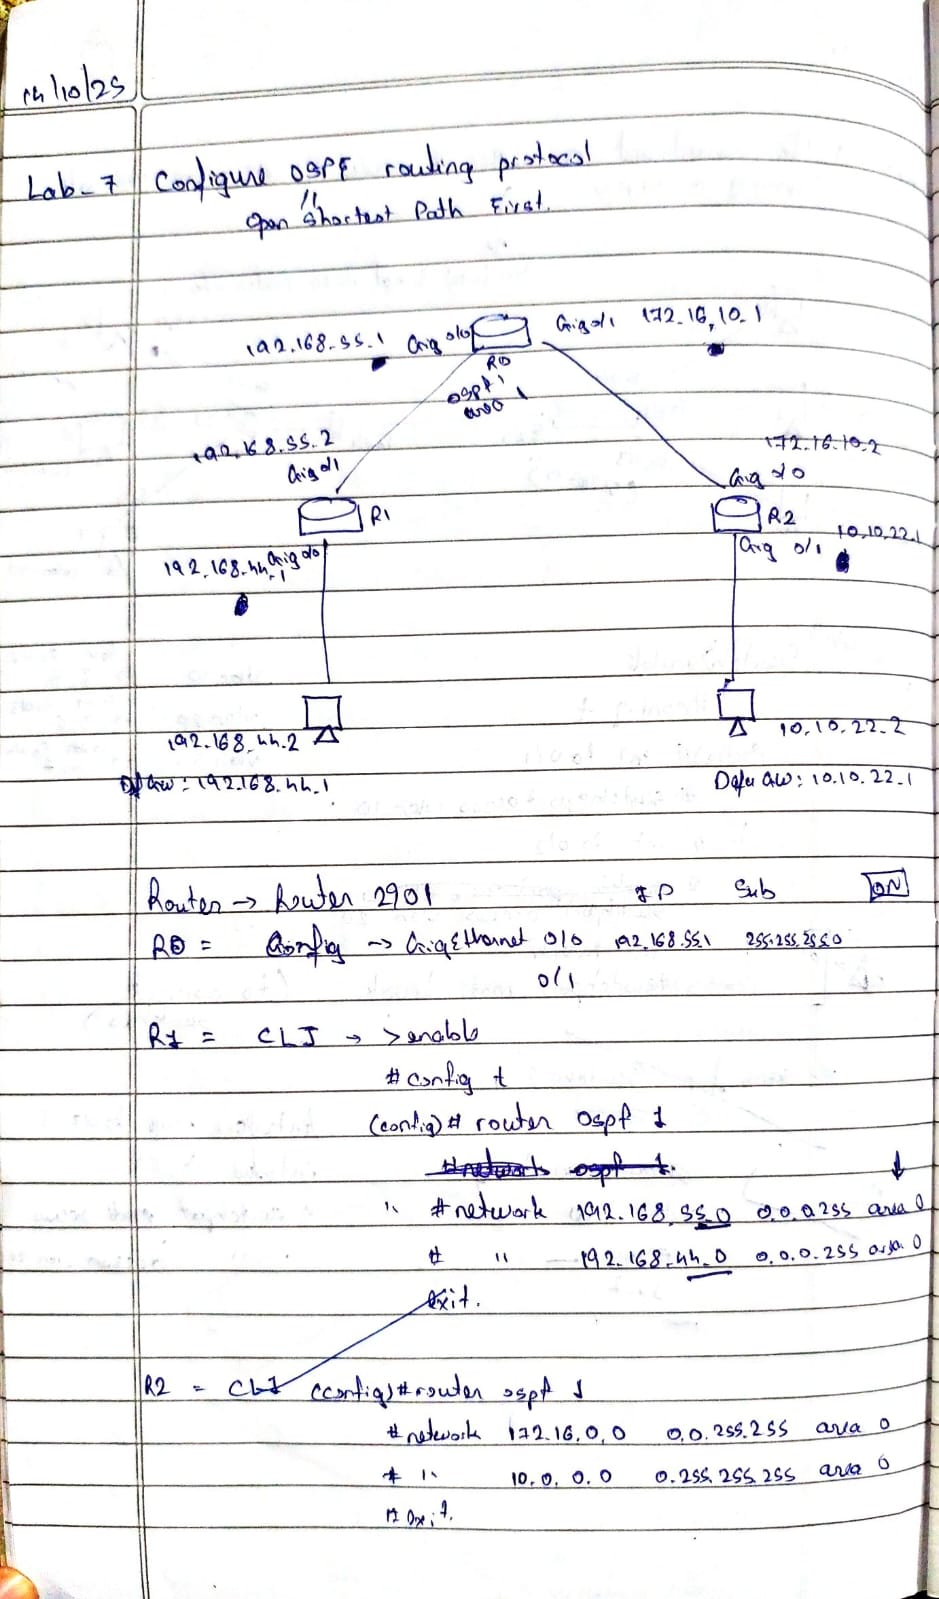 14/10/25
Lab-7 Configure OSPF routing protocol
"
Open Shortest Path First.
192.168.55.1 Gig 0/0 Gig 0/1 172.16.10.1
R0
ospf 1
area
192.168.55.2 172.16.10.2
Gig 0/1 Gig 0/0
R1 R2
10.10.22.1
192.168.44.1 Gig 0/0 Gig 0/1
192.168.44.2 10.10.22.2
Df Gw: 192.168.44.1 Defu GW: 10.10.22.1
Router → Router 2901 IP Sub ON
R0 = Config → GigEthernet 0/0 192.168.55.1 255.255.255.0
0/1
R1 = CLI → >enable
# config t
(config)# router ospf 1
#network ospf 1.
" #network 192.168.55.0 0.0.0.255 area 0
# " 192.168.44.0 0.0.0.255 area 0
exit.
R2 = CLI (config)#router ospf 1
#network 172.16.0.0 0.0.255.255 area 0
# " 10.0.0.0 0.255.255.255 area 0
# exit.